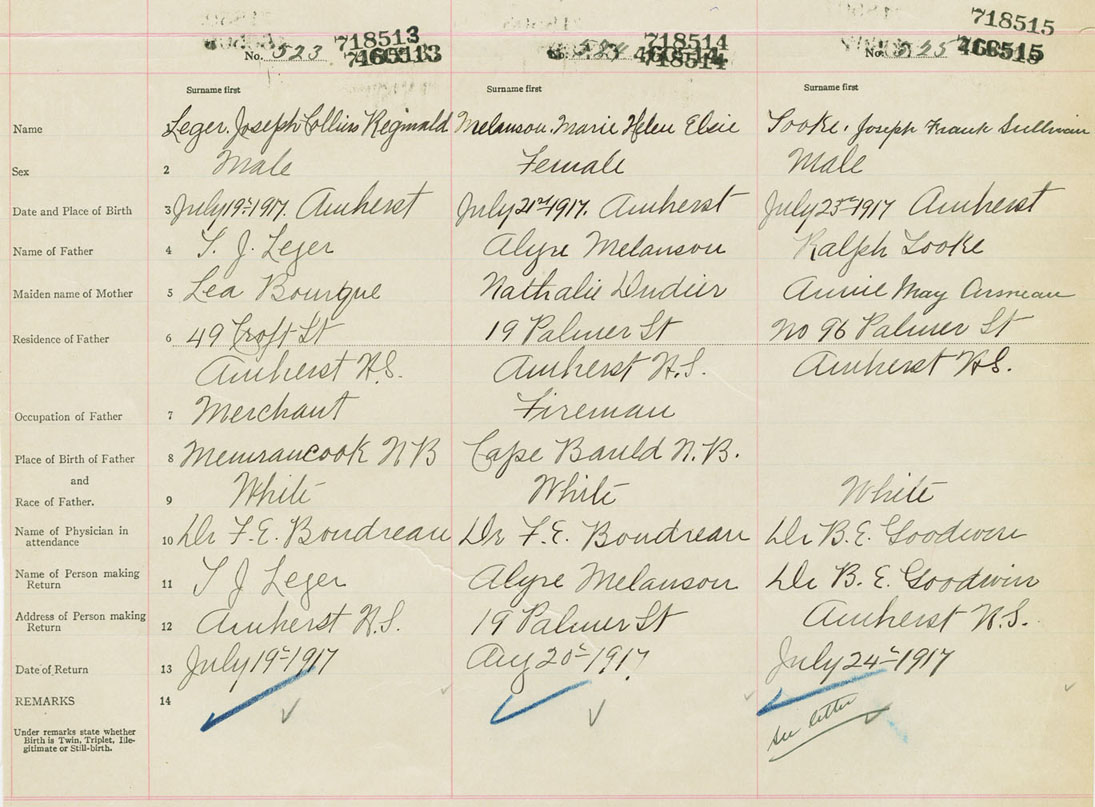 718513 718514 718515
No. 523 No. 524 No. 525 468515
Surname first Surname first Surname first
Name Leger, Joseph Collins Reginald Melanson, Marie Helen Elsie Tooke, Joseph Frank Sullivan
Sex 2 Male Female Male
Date and Place of Birth 3 July 19th 1917. Amherst July 21st 1917. Amherst July 23rd 1917 Amherst
Name of Father 4 T. J. Leger Alyre Melanson Ralph Tooke
Maiden name of Mother 5 Lea Bourque Nathalie Annie May
Residence of Father 6 49 Croft St 19 Palmer St No 96 Palmer St
Amherst N.S. Amherst N.S. Amherst N.S.
Occupation of Father 7 Merchant Fireman
Place of Birth of Father 8 Memramcook N B Cape Bauld N.B.
and
Race of Father. 9 White White White
Name of Physician in
attendance 10 Dr F. E. Boudreau Dr F. E. Boudreau Dr B. E. Goodwin
Name of Person making
Return 11 T J Leger Alyre Melanson Dr B. E. Goodwin
Address of Person making
Return 12 Amherst N.S. 19 Palmer St Amherst N.S.
Date of Return 13 July 19th 1917 Aug 20th 1917 July 24th 1917
REMARKS 14
see letter
Under remarks state whether
Birth is Twin, Triplet, Ille-
gitimate or Still-birth.